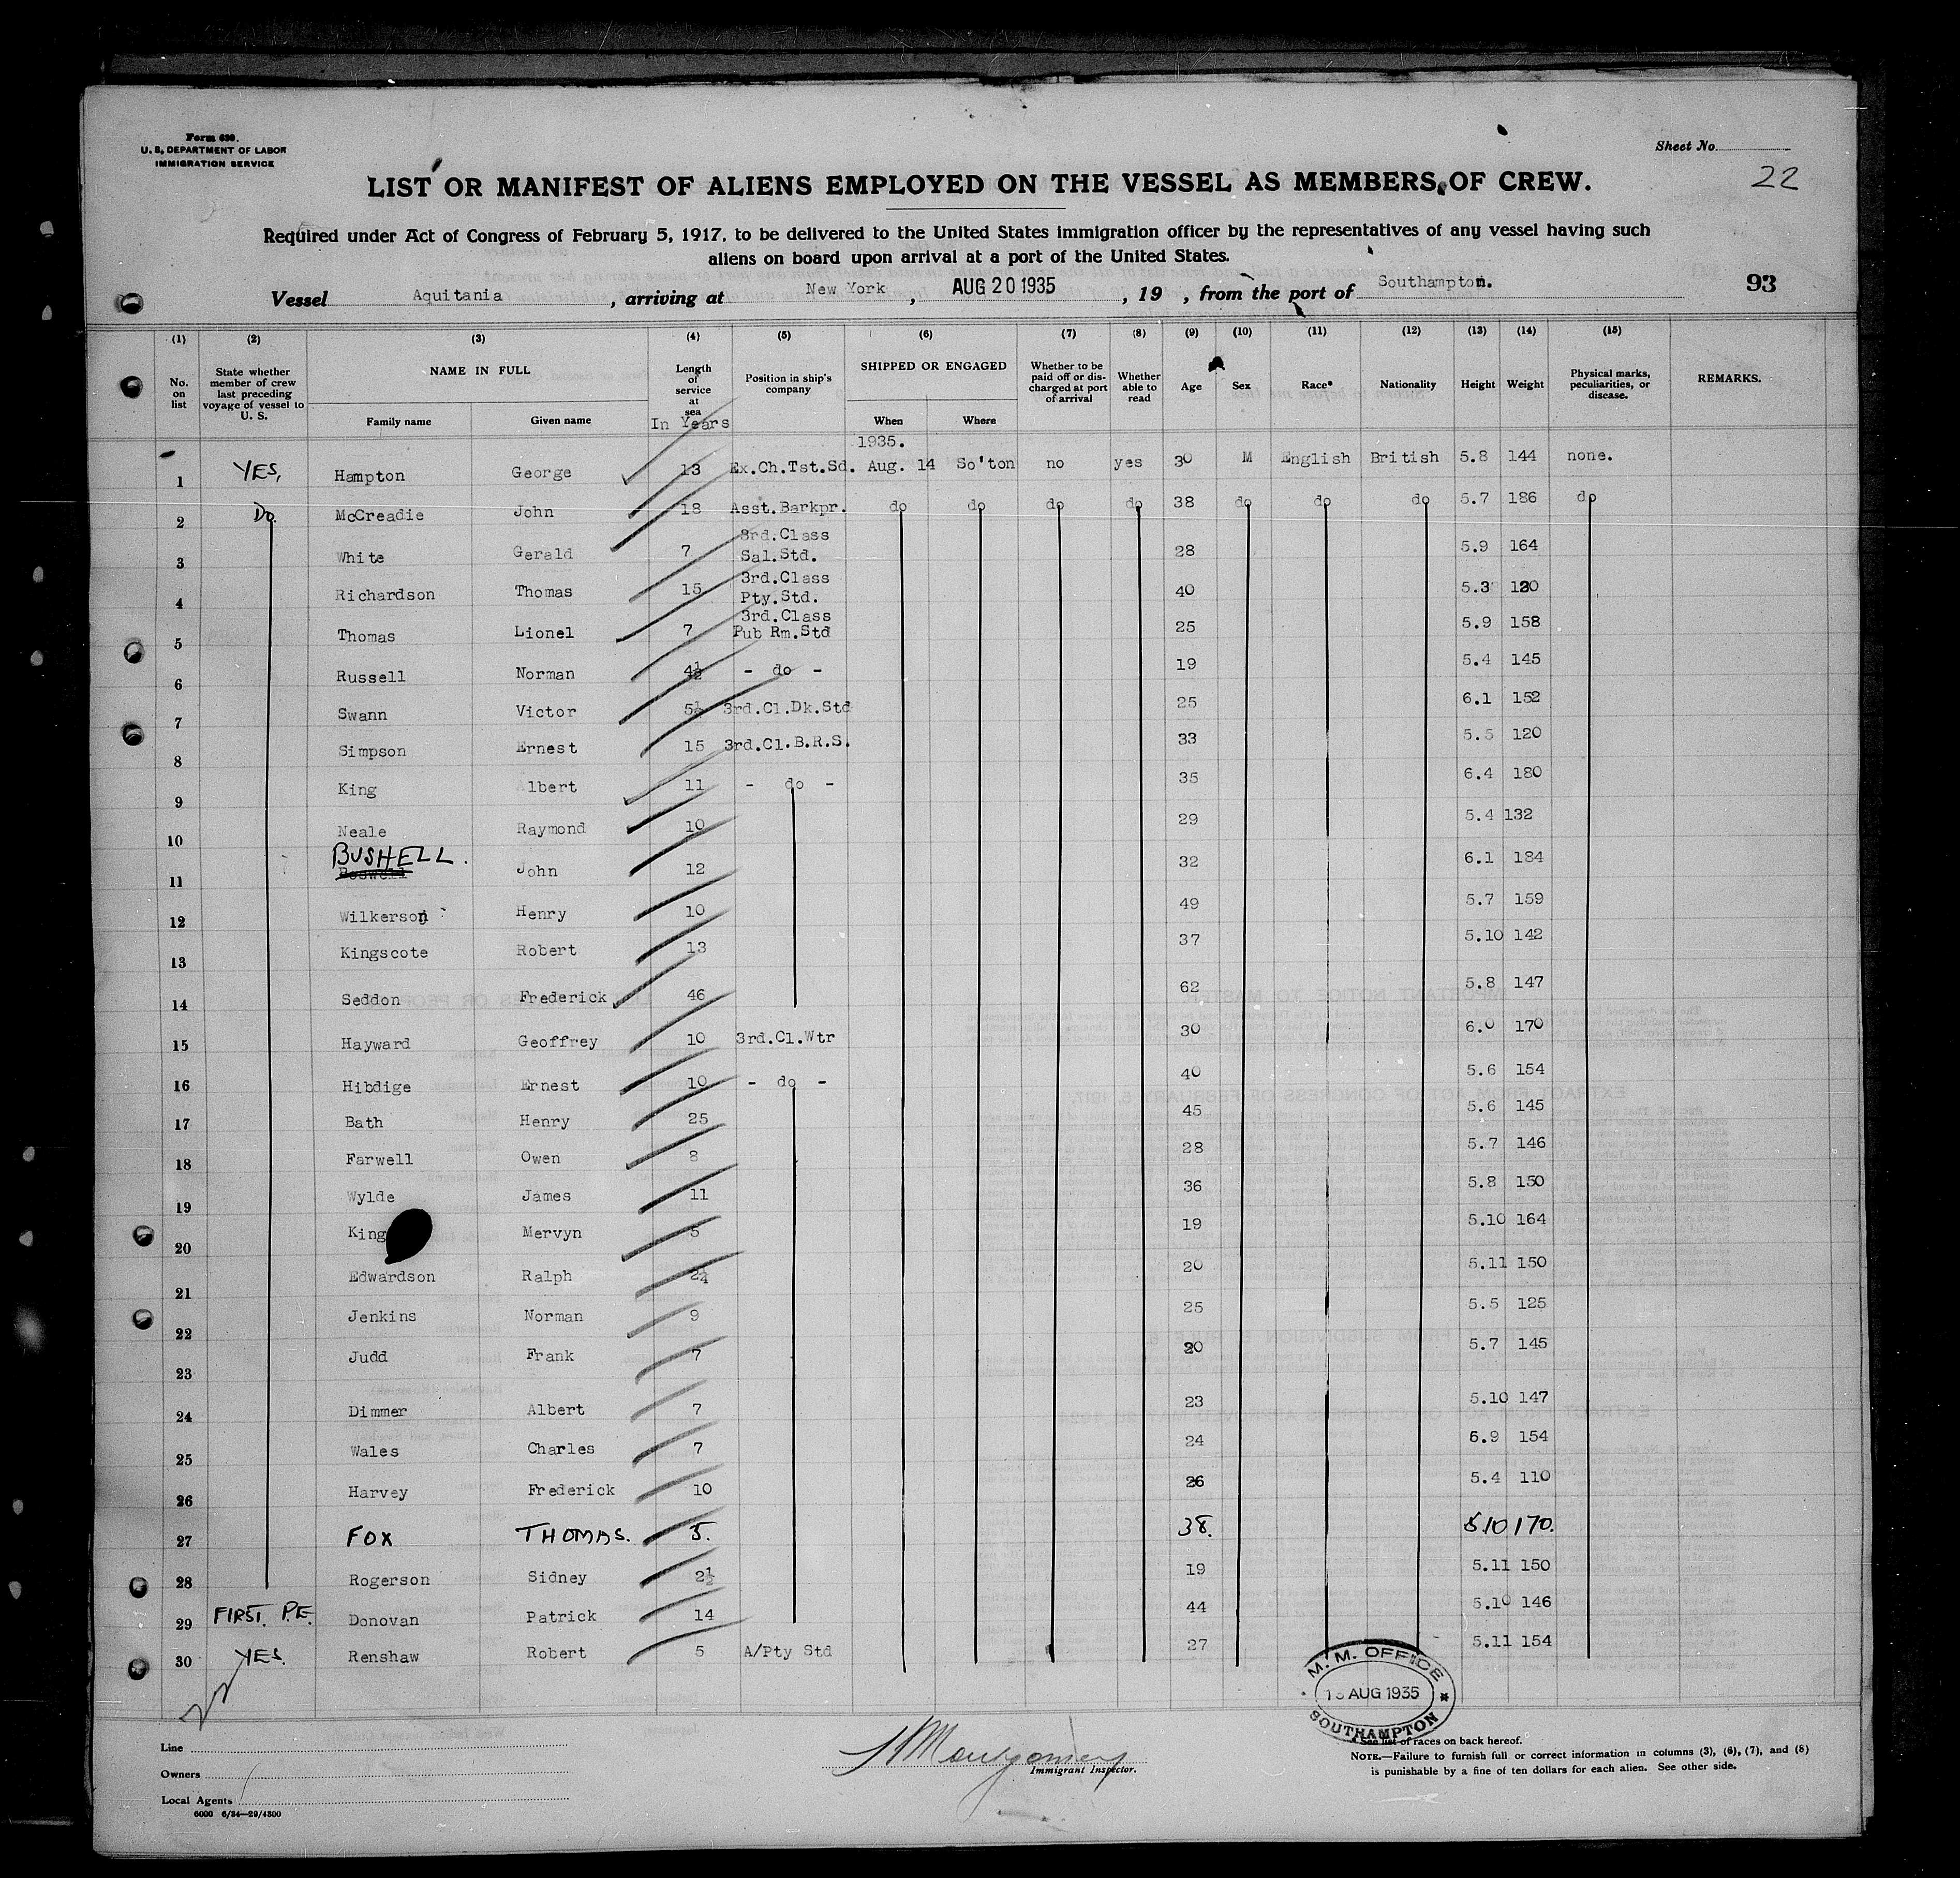 Form 680.
U. S. DEPARTMENT OF LABOR
IMMIGRATION SERVICE
Sheet No.
22
LIST OR MANIFEST OF ALIENS EMPLOYED ON THE VESSEL AS MEMBERS OF CREW.
Required under Act of Congress of February 5, 1917, to be delivered to the United States immigration officer by the representatives of any vessel having such
aliens on board upon arrival at a port of the United States.
Vessel Aquitania , arriving at New York , AUG 20 1935 , 19 , from the port of Southampton. 93
(1) (2) (3) (4) (5) (6) (7) (8) (9) (10) (11) (12) (13) (14) (15)
No. on list State whether member of crew last preceding voyage of vessel to U. S. NAME IN FULL Family name Given name Length of service at sea In Years Position in ship's company SHIPPED OR ENGAGED When Where Whether to be paid off or discharged at port of arrival Whether able to read Age Sex Race* Nationality Height Weight Physical marks, peculiarities, or disease. REMARKS.
1935.
1 YES, Hampton George 13 Ex.Ch.Tst.Sd. Aug. 14 So'ton no yes 30 M English British 5.8 144 none.
2 Do. McCreadie John 18 Asst.Barkpr. do do do do 38 do do do 5.7 186 do
3 White Gerald 7 3rd.Class Sal.Std. 28 5.9 164
4 Richardson Thomas 15 3rd.Class Pty.Std. 40 5.3 120
5 Thomas Lionel 7 3rd.Class Pub Rm.Std 25 5.9 158
6 Russell Norman 4½ - do - 19 5.4 145
7 Swann Victor 5½ 3rd.Cl.Dk.Std 25 6.1 152
8 Simpson Ernest 15 3rd.Cl.B.R.S. 33 5.5 120
9 King Albert 11 - do - 35 6.4 180
10 Neale Raymond 10 29 5.4 132
11 BUSHELL. Boswell John 12 32 6.1 184
12 Wilkerson Henry 10 49 5.7 159
13 Kingscote Robert 13 37 5.10 142
14 Seddon Frederick 46 62 5.8 147
15 Hayward Geoffrey 10 3rd.Cl.Wtr 30 6.0 170
16 Hibdige Ernest 10 - do - 40 5.6 154
17 Bath Henry 25 45 5.6 145
18 Farwell Owen 8 28 5.7 146
19 Wylde James 11 36 5.8 150
20 King Mervyn 5 19 5.10 164
21 Edwardson Ralph 2¼ 20 5.11 150
22 Jenkins Norman 9 25 5.5 125
23 Judd Frank 7 20 5.7 145
24 Dimmer Albert 7 23 5.10 147
25 Wales Charles 7 24 6.9 154
26 Harvey Frederick 10 26 5.4 110
27 FOX THOMAS. 5. 38. 5.10 170.
28 Rogerson Sidney 2½ 19 5.11 150
29 FIRST. P.E. Donovan Patrick 14 44 5.10 146
30 YES. Renshaw Robert 5 A/Pty Std 27 5.11 154
M. M. OFFICE
AUG 1935
SOUTHAMPTON
Line
Owners
Local Agents
6000 6/34—29/4300
Montgomery
Immigrant Inspector.
* See list of races on back hereof.
NOTE.—Failure to furnish full or correct information in columns (3), (6), (7), and (8)
is punishable by a fine of ten dollars for each alien. See other side.